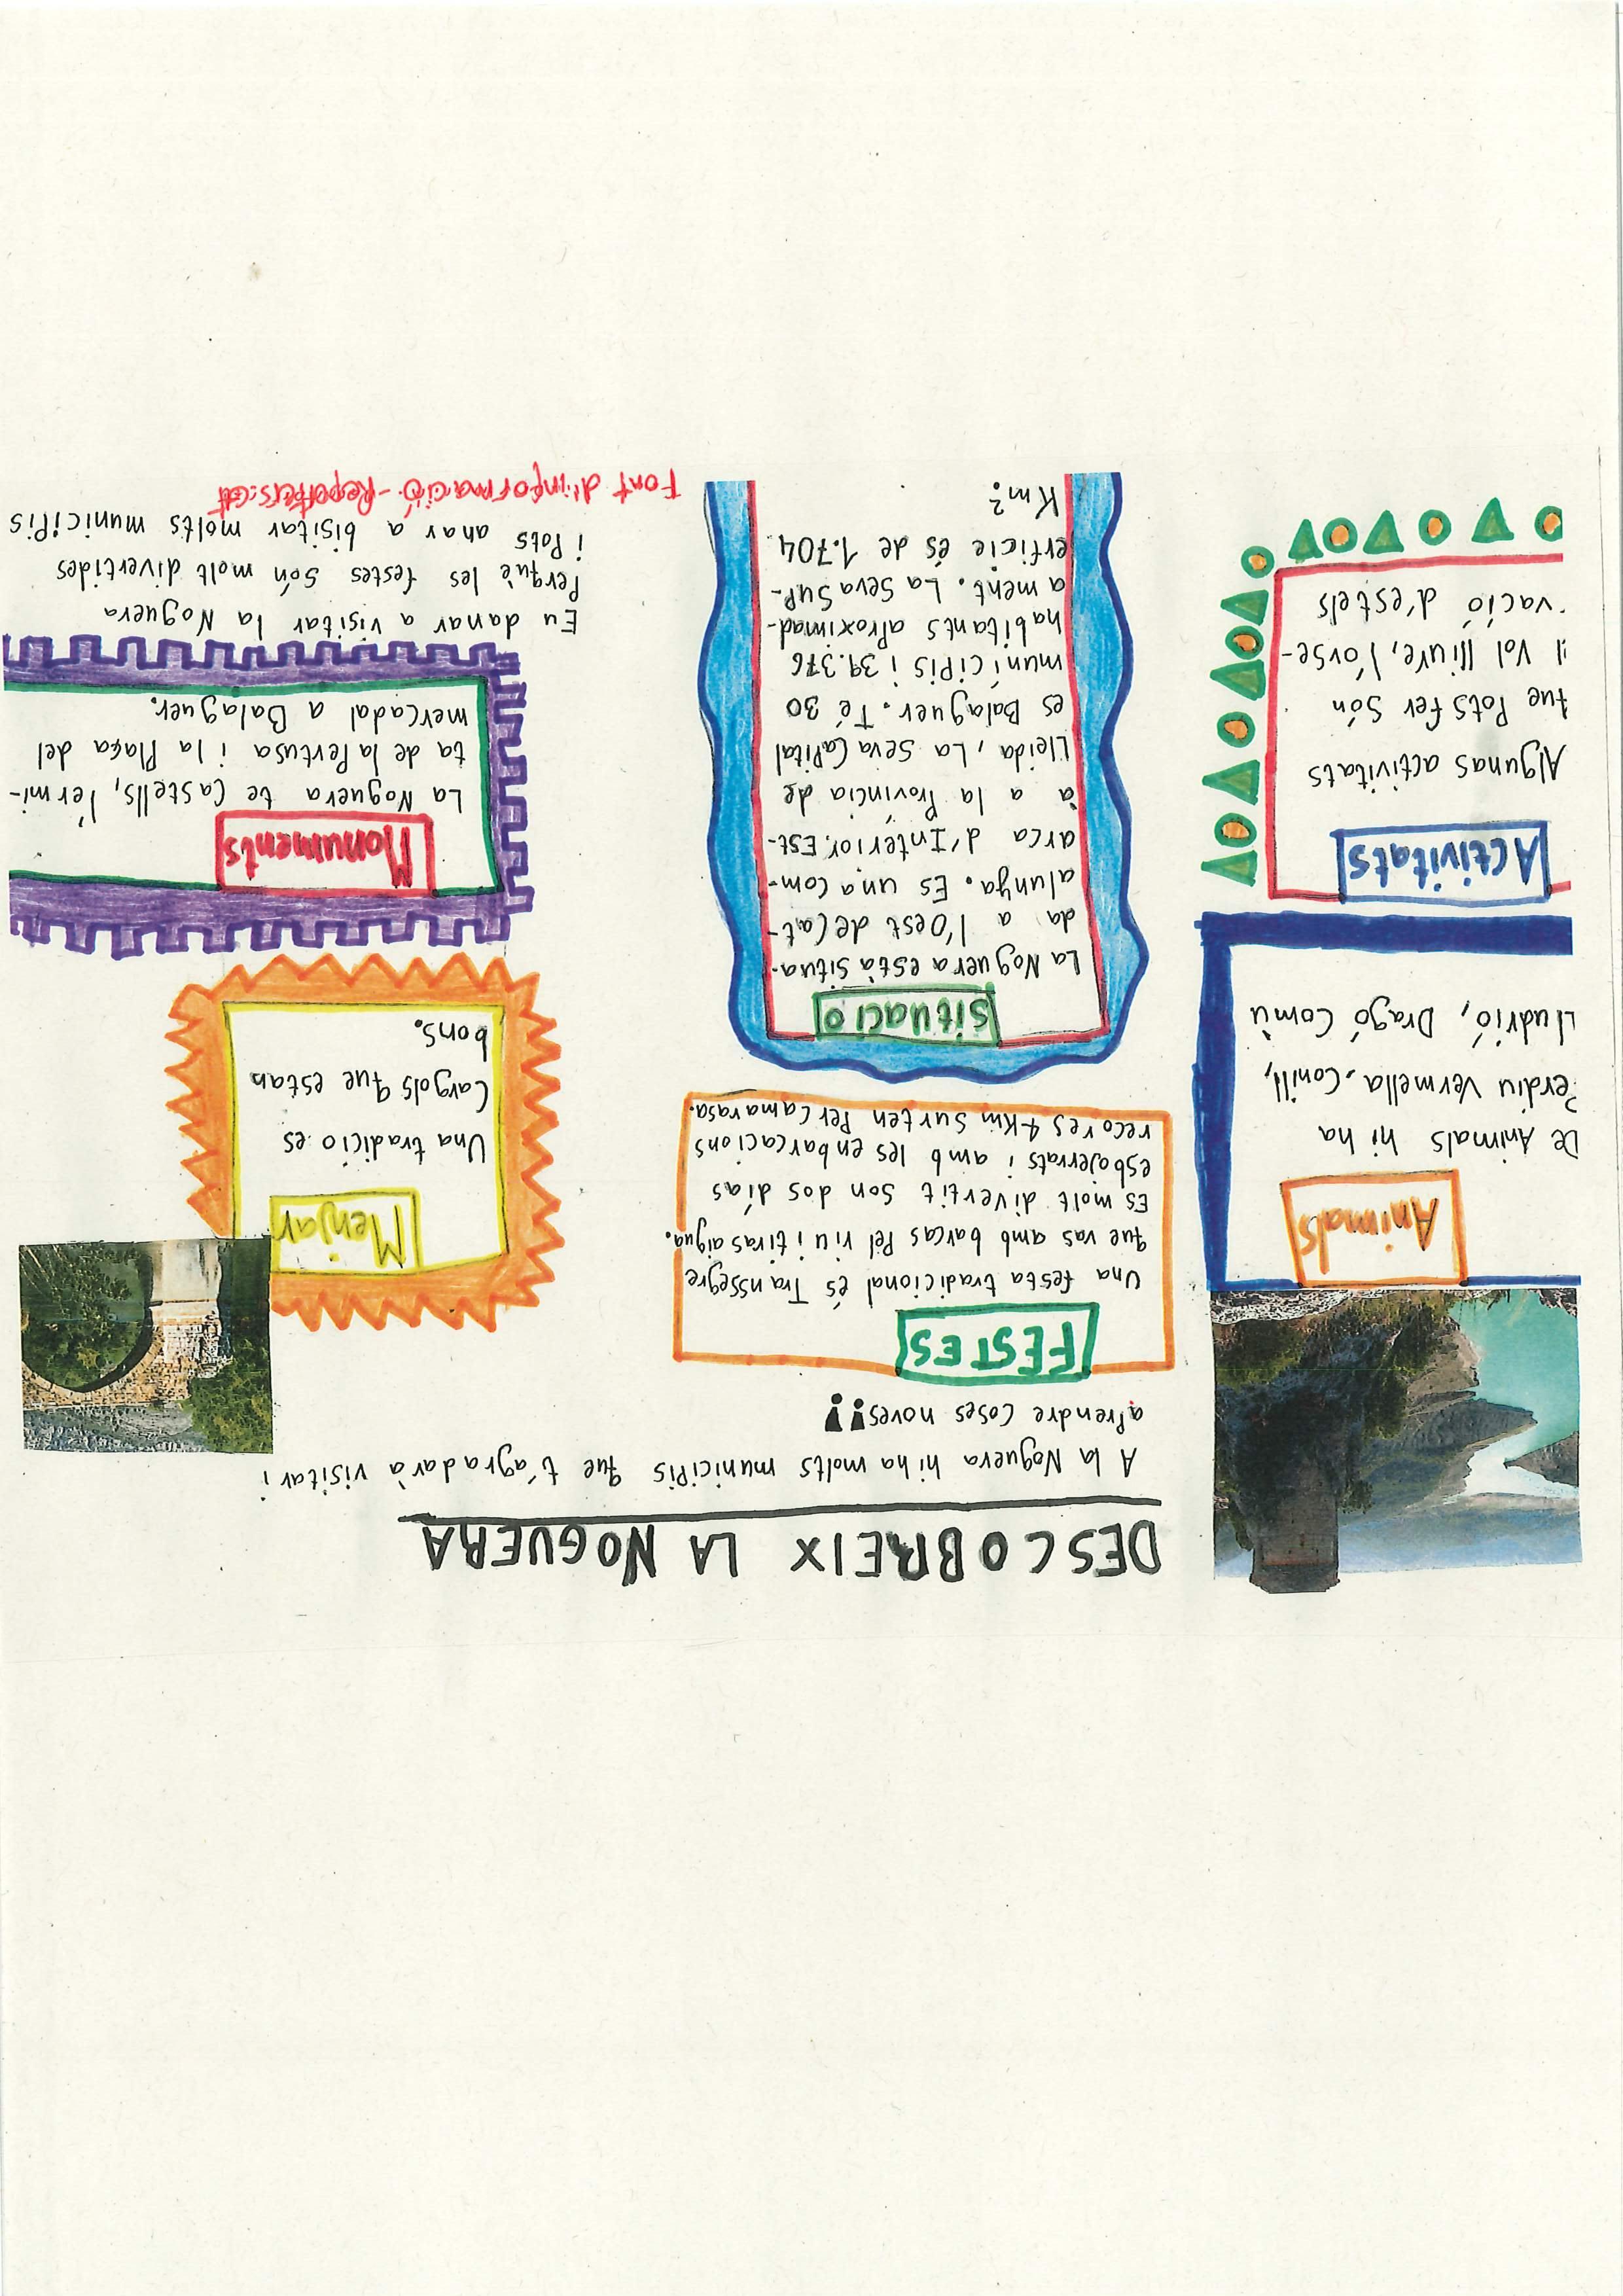 DESCOBREIX LA NOGUERA
A la Noguera hi ha molts municipis que t'agradarà visitar i
aprendre coses noves¡¡
Animals
De Animals hi ha
Perdiu Vermella. Conill,
Lludrió, Dragó Comù
Activitats
Algunas activitats
que Pots fer són
il vol lliure, l'óvse-
vació d'estels
FESTES
Una festa tradicional és Transsegre
que vas amb barcas Pel riu i tiras aigua.
Es molt divertit son dos días
esbojerrats i amb les enbarcacions
recores 4 Km surten Per Camarasa.
Situació
La Noguera està situa-
da a l'oest de Cat-
alunya. Es una com-
arca d'Interior. Est-
à a la Província de
Lleida, La Seva Capital
es Balaguer. Té 30
municipis i 39.376
habitants aproximad-
ament. La Seva SuP-
erficie és de 1.704
Km²
Menjar
Una tradicio es
Cargols que estan
bons.
Monuments
La Noguera te Castells, l'ermi-
ta de la Pertusa i la Plaça del
mercadal a Balaguer.
Eu danar a visitar la Noguera
Perquè les festes són molt divertides
i Pots anar a bisitar molts municipis
Font d'informació-